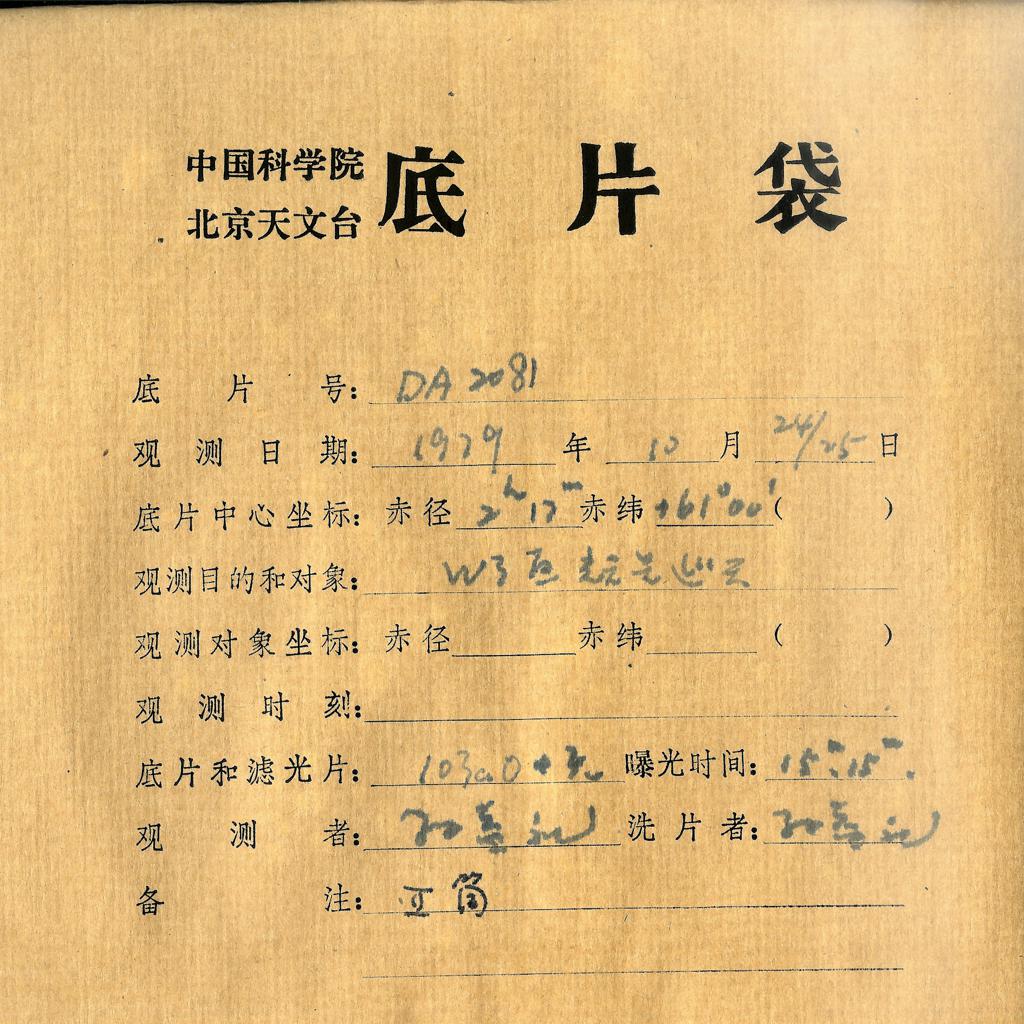 中国科学院
北京天文台
底片袋
底片号: DA 2081
观测日期: 1979 年 10 月 24/25 日
底片中心坐标: 赤径 2ʰ 17ᵐ 赤纬 +61°00′ ( )
观测目的和对象: W3区 耀星巡天
观测对象坐标: 赤径 赤纬 ( )
观测时刻:
底片和滤光片: 103aO + 无 曝光时间: 15ᵐ, 15ᵐ.
观测者: 洗片者:
备注: 筒